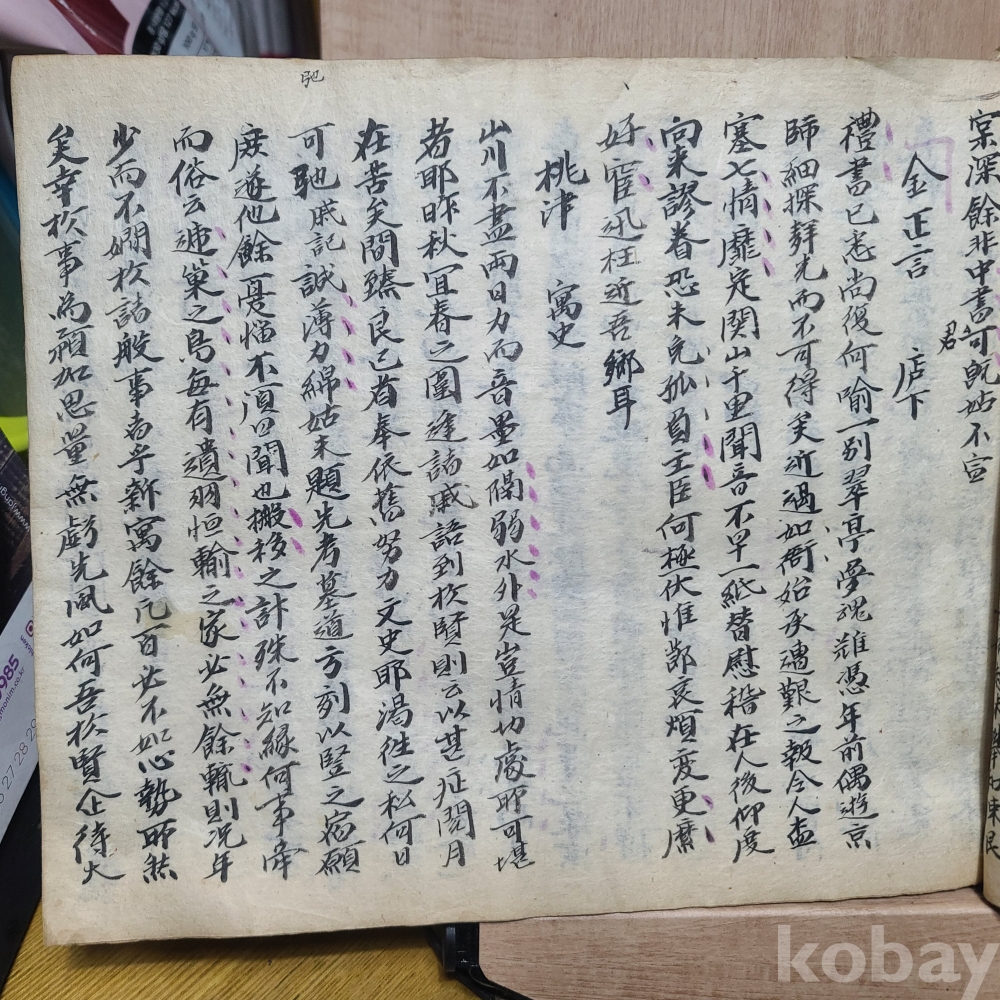 窠深餘非中書君可旣姑不宣
金正言 店下
禮書已悉尚復何喻一別翠亭夢魂難憑年前偶遊京
師細探拜光而不可得矣近過如衙始承遭艱之報令人盍
塞七情靡定関山千里聞音不早一紙替慰稽在人後仰度
向來謬眷恐未免孤負主臣何極伏惟鄙哀煩変更靡
好窀迅枉近吾鄉耳
桃津 寓史
山川不盡兩日力而音墨如隔弱水外是豈情切處耶可堪
者耶昨秋宜春之圍逢諸戚語到於賢則云以甚症閱月
在苦矣間臻良已省奉依舊努力文史耶渴徃之私何日
可馳戚記誠薄力綿姑未題先考墓道方刻以竪之宿願
庶遊他餘一憂惱不須四聞也搬移之計殊不知緣何事䍧
而俗云逋巢之鳥每有遺羽恒輸之家必無餘輒則况年
少而不嫺於諸般事者乎新寓餘凡百必不如心勢所然
矣幸於事為頻加思量無虧先風如何吾於賢企待大
馳
kobay
985
27·28·29